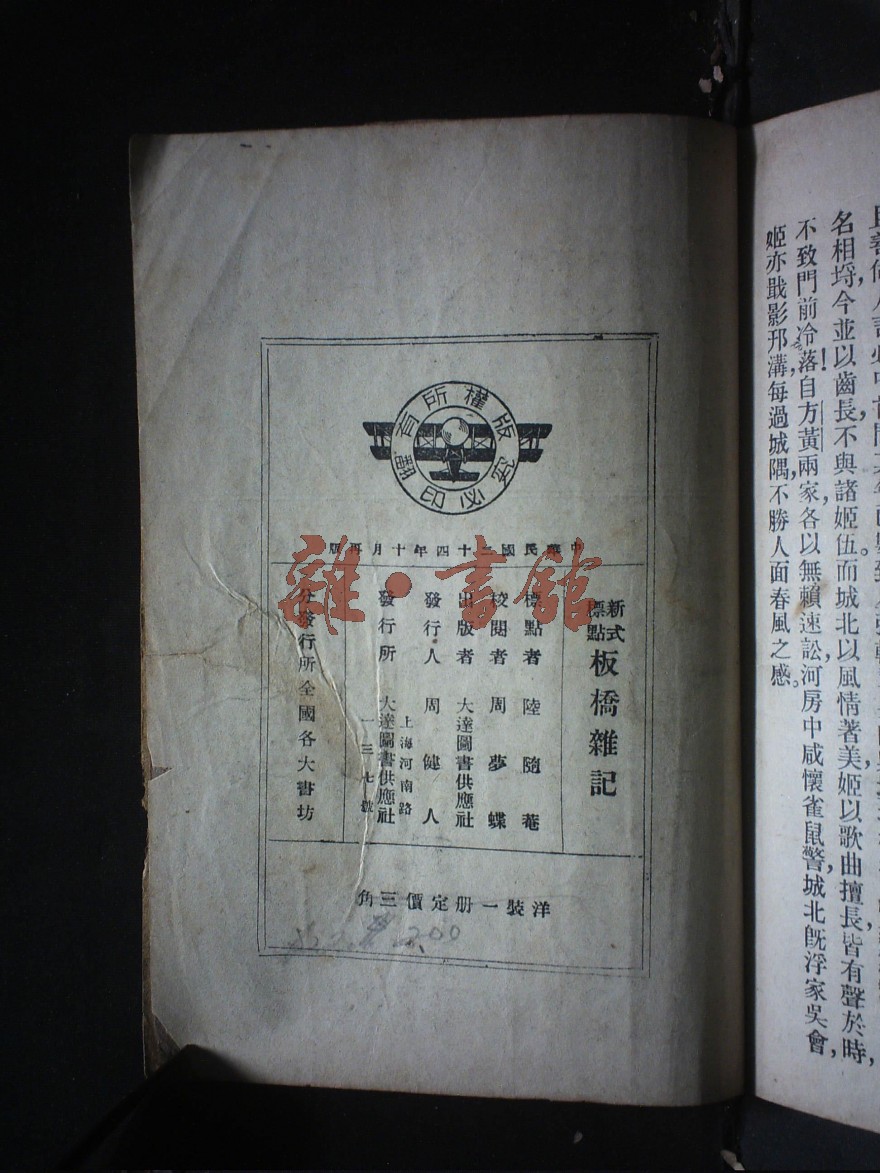 名相埒,今並以齒長,不與諸姬伍。而城北以風情著美,姬以歌曲擅長,皆有聲於時,
不致門前冷落!自方黃兩家,各以無賴速訟,河房中咸懷雀鼠警,城北旣浮家吳會,
姬亦戢影邗溝,每過城隅,不勝人面春風之感。
版權所有
翻印必究
中華民國二十四年十月再版
新式標點
板橋雜記
標點者 陸隨菴
校閱者 周夢蝶
出版者 大達圖書供應社
發行人 周健人
上海河南路
發行所 大達圖書供應社
一三七號
分發行所全國各大書坊
洋裝一册定價三角
200
雜·書館